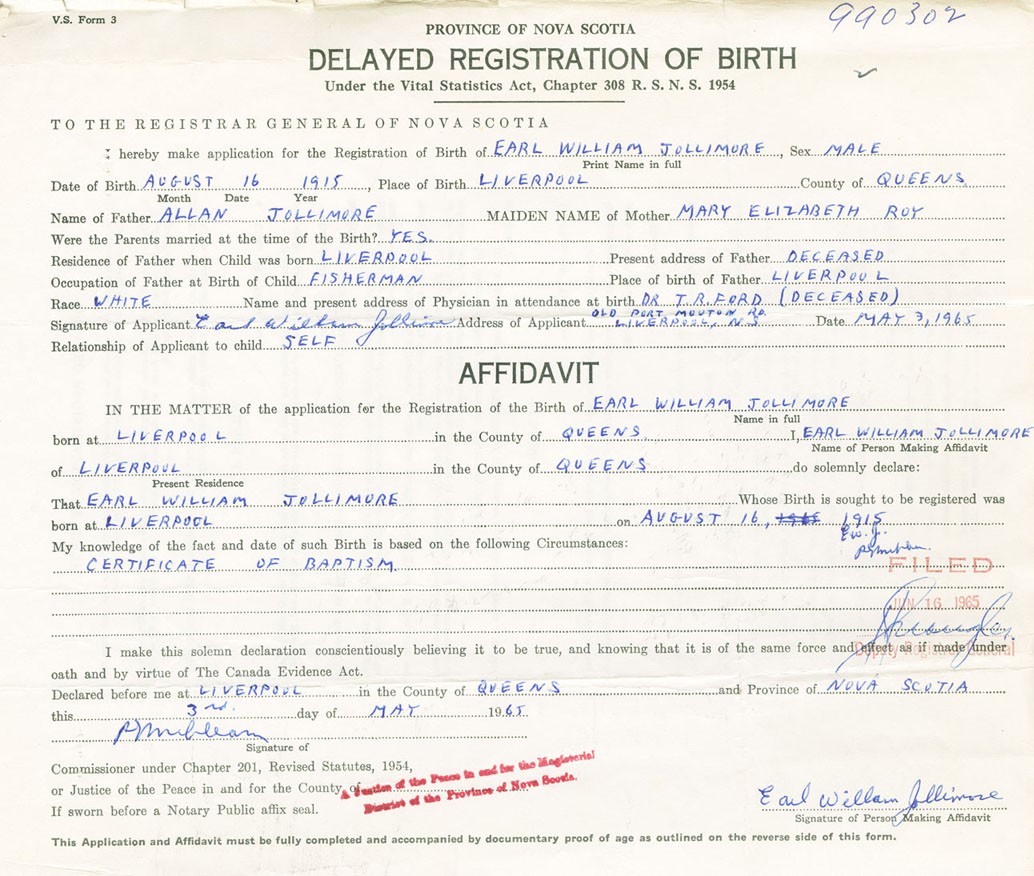 V.S. Form 3
990302
PROVINCE OF NOVA SCOTIA
DELAYED REGISTRATION OF BIRTH
Under the Vital Statistics Act, Chapter 308 R. S. N. S. 1954
TO THE REGISTRAR GENERAL OF NOVA SCOTIA
I hereby make application for the Registration of Birth of EARL WILLIAM JOLLIMORE, Sex MALE
Print Name in full
Date of Birth AUGUST 16 1915, Place of Birth LIVERPOOL County of QUEENS
Month Date Year
Name of Father ALLAN JOLLIMORE MAIDEN NAME of Mother MARY ELIZABETH ROY
Were the Parents married at the time of the Birth? YES.
Residence of Father when Child was born LIVERPOOL Present address of Father DECEASED
Occupation of Father at Birth of Child FISHERMAN Place of birth of Father LIVERPOOL
Race WHITE Name and present address of Physician in attendance at birth DR T.R. FORD (DECEASED)
Signature of Applicant Earl William Jollimore Address of Applicant OLD PORT MOUTON RD. LIVERPOOL, N.S Date MAY 3, 1965
Relationship of Applicant to child SELF
AFFIDAVIT
IN THE MATTER of the application for the Registration of the Birth of EARL WILLIAM JOLLIMORE
Name in full
born at LIVERPOOL in the County of QUEENS I, EARL WILLIAM JOLLIMORE
Name of Person Making Affidavit
of LIVERPOOL in the County of QUEENS do solemnly declare:
Present Residence
That EARL WILLIAM JOLLIMORE Whose Birth is sought to be registered was
born at LIVERPOOL on AUGUST 16, 1965 1915
E.W.J.
My knowledge of the fact and date of such Birth is based on the following Circumstances:
CERTIFICATE OF BAPTISM
FILED
JUN 16 1965
Deputy Registrar General
I make this solemn declaration conscientiously believing it to be true, and knowing that it is of the same force and effect as if made under
oath and by virtue of The Canada Evidence Act.
Declared before me at LIVERPOOL in the County of QUEENS and Province of NOVA SCOTIA
this 3rd. day of MAY 1965
Signature of
Commissioner under Chapter 201, Revised Statutes, 1954,
or Justice of the Peace in and for the County of
A Justice of the Peace in and for the Magisterial
District of the Province of Nova Scotia.
If sworn before a Notary Public affix seal.
Earl William Jollimore
Signature of Person Making Affidavit
This Application and Affidavit must be fully completed and accompanied by documentary proof of age as outlined on the reverse side of this form.